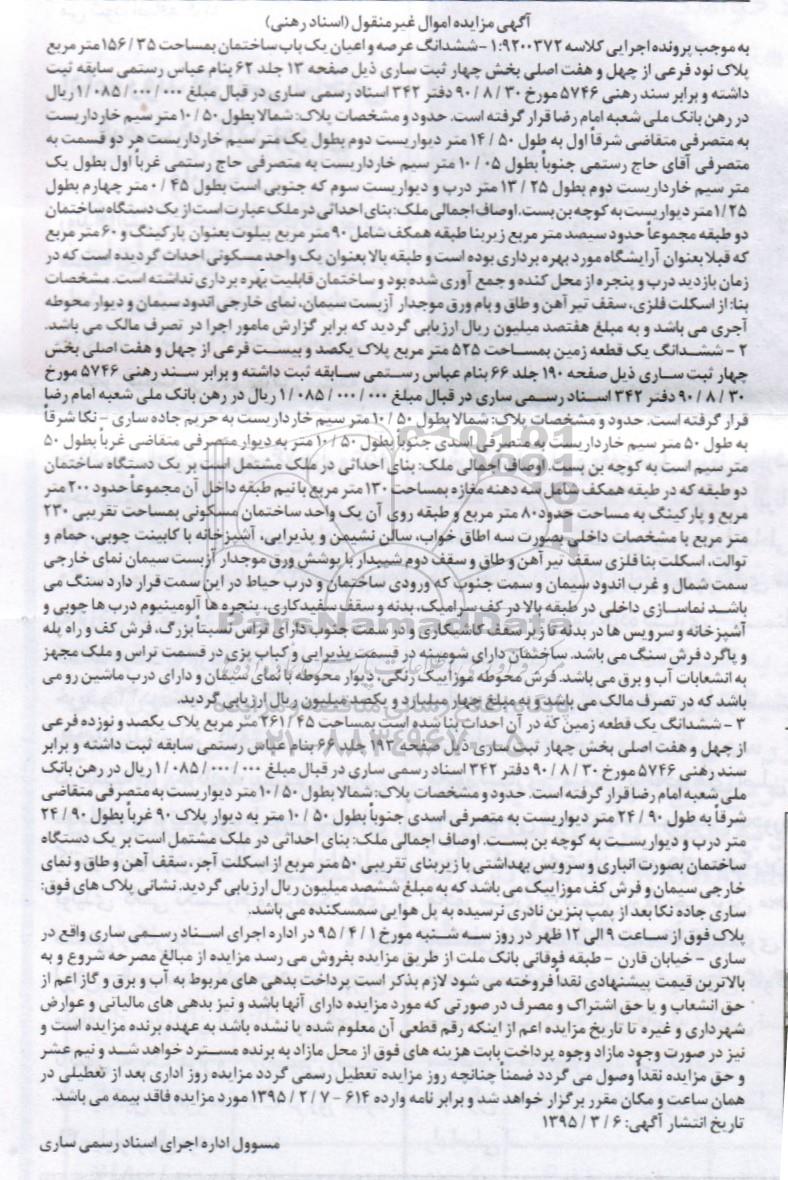 آگهی مزایده اموال غیرمنقول (اسناد رهنی)
به موجب پرونده اجرایی کلاسه ۹۲۰۰۳۷۲: ۱- ششدانگ عرصه و اعیان یک باب ساختمان بمساحت ۳۵ / ۱۵۶ متر مربع
پلاک نود فرعی از چهل و هفت اصلی بخش چهار ثبت ساری ذیل صفحه ۱۳ جلد ۶۲ بنام عباس رستمی سابقه ثبت
داشته و برابر سند رهنی ۵۷۴۶ مورخ ۳۰ / ۸ / ۹۰ دفتر ۳۴۲ اسناد رسمی ساری در قبال مبلغ ۰۰۰ / ۰۰۰ / ۰۸۵ / ۱ ریال
در رهن بانک ملی شعبه امام رضا قرار گرفته است. حدود و مشخصات پلاک: شمالا بطول ۵۰ / ۱۰ متر سیم خارداریست
به متصرفی متقاضی شرقاً اول به طول ۵۰ / ۱۴ متر دیواریست دوم بطول یک متر سیم خارداریست هر دو قسمت به
متصرفی آقای حاج رستمی جنوباً بطول ۰۵ / ۱۰ متر سیم خارداریست به متصرفی حاج رستمی غرباً اول بطول یک
متر سیم خارداریست دوم بطول ۲۵ / ۱۳ متر درب و دیواریست سوم که جنوبی است بطول ۴۵ / ۰ متر چهارم بطول
۲۵ / ۱ متر دیواریست به کوچه بن بست. اوصاف اجمالی ملک: بنای احداثی در ملک عبارت است از یک دستگاه ساختمان
دو طبقه مجموعاً حدود سیصد متر مربع زیربنا طبقه همکف شامل ۹۰ متر مربع پیلوت بعنوان پارکینگ و ۶۰ متر مربع
که قبلا بعنوان آرایشگاه مورد بهره برداری بوده است و طبقه بالا بعنوان یک واحد مسکونی احداث گردیده است که در
زمان بازدید درب و پنجره از محل کنده و جمع آوری شده بود و ساختمان قابلیت بهره برداری نداشته است. مشخصات
بنا: از اسکلت فلزی، سقف تیر آهن و طاق و بام ورق موجدار آزبست سیمان، نمای خارجی اندود سیمان و دیوار محوطه
آجری می باشد و به مبلغ هفتصد میلیون ریال ارزیابی گردید که برابر گزارش مامور اجرا در تصرف مالک می باشد.
۲ - ششدانگ یک قطعه زمین بمساحت ۵۲۵ متر مربع پلاک یکصد و بیست فرعی از چهل و هفت اصلی بخش
چهار ثبت ساری ذیل صفحه ۱۹۰ جلد ۶۶ بنام عباس رستمی سابقه ثبت داشته و برابر سند رهنی ۵۷۴۶ مورخ
۳۰ / ۸ / ۹۰ دفتر ۳۴۲ اسناد رسمی ساری در قبال مبلغ ۰۰۰ / ۰۰۰ / ۰۸۵ / ۱ ریال در رهن بانک ملی شعبه امام رضا
قرار گرفته است. حدود و مشخصات پلاک: شمالا بطول ۵۰ / ۱۰ متر سیم خارداریست به حریم جاده ساری - نکا شرقاً
به طول ۵۰ متر سیم خارداریست به متصرفی اسدی جنوباً بطول ۵۰ / ۱۰ متر به دیوار متصرفی متقاضی غرباً بطول ۵۰
متر سیم است به کوچه بن بست. اوصاف اجمالی ملک: بنای احداثی در ملک مشتمل است بر یک دستگاه ساختمان
دو طبقه که در طبقه همکف شامل سه دهنه مغازه بمساحت ۱۳۰ متر مربع با نیم طبقه داخل آن مجموعاً حدود ۲۰۰ متر
مربع و پارکینگ به مساحت حدود ۸۰ متر مربع و طبقه روی آن یک واحد ساختمان مسکونی بمساحت تقریبی ۲۳۰
متر مربع با مشخصات داخلی بصورت سه اطاق خواب، سالن نشیمن و پذیرایی، آشپزخانه با کابینت چوبی، حمام و
توالت، اسکلت بنا فلزی سقف تیر آهن و طاق و سقف دوم شیبدار با پوشش ورق موجدار آزبست سیمان نمای خارجی
سمت شمال و غرب اندود سیمان و سمت جنوب که ورودی ساختمان و درب حیاط در این سمت قرار دارد سنگ می
باشد نماسازی داخلی در طبقه بالا در کف سرامیک، بدنه و سقف سفیدکاری، پنجره ها آلومینیوم درب ها چوبی و
آشپزخانه و سرویس ها در بدنه تا زیر سقف کاشیکاری و در سمت جنوب دارای تراس نسبتاً بزرگ، فرش کف و راه پله
و پاگرد فرش سنگ می باشد. ساختمان دارای شومینه در قسمت پذیرایی و کباب پزی در قسمت تراس و ملک مجهز
به انشعابات آب و برق می باشد. فرش محوطه موزاییک رنگی، دیوار محوطه با نمای سیمان و دارای درب ماشین رو می
باشد که در تصرف مالک می باشد و به مبلغ چهار میلیارد و یکصد میلیون ریال ارزیابی گردید.
۳ - ششدانگ یک قطعه زمین که در آن احداث بنا شده است بمساحت ۴۵ / ۲۶۱ متر مربع پلاک یکصد و نوزده فرعی
از چهل و هفت اصلی بخش چهار ثبت ساری ذیل صفحه ۱۹۳ جلد ۶۶ بنام عباس رستمی سابقه ثبت داشته و برابر
سند رهنی ۵۷۴۶ مورخ ۳۰ / ۸ / ۹۰ دفتر ۳۴۲ اسناد رسمی ساری در قبال مبلغ ۰۰۰ / ۰۰۰ / ۰۸۵ / ۱ ریال در رهن بانک
ملی شعبه امام رضا قرار گرفته است. حدود و مشخصات پلاک: شمالا بطول ۵۰ / ۱۰ متر دیواریست به متصرفی متقاضی
شرقاً به طول ۹۰ / ۲۴ متر دیواریست به متصرفی اسدی جنوباً بطول ۵۰ / ۱۰ متر به دیوار پلاک ۹۰ غرباً بطول ۹۰ / ۲۴
متر درب و دیواریست به کوچه بن بست. اوصاف اجمالی ملک: بنای احداثی در ملک مشتمل است بر یک دستگاه
ساختمان بصورت انباری و سرویس بهداشتی با زیربنای تقریبی ۵۰ متر مربع از اسکلت آجر، سقف آهن و طاق و نمای
خارجی سیمان و فرش کف موزاییک می باشد که به مبلغ ششصد میلیون ریال ارزیابی گردید. نشانی پلاک های فوق:
ساری جاده نکا بعد از پمپ بنزین نادری نرسیده به پل هوایی سمسکنده می باشد.
پلاک فوق از ساعت ۹ الی ۱۲ ظهر در روز سه شنبه مورخ ۱ / ۴ / ۹۵ در اداره اجرای اسناد رسمی ساری واقع در
ساری - خیابان قارن - طبقه فوقانی بانک ملت از طریق مزایده بفروش می رسد مزایده از مبالغ مصرحه شروع و به
بالاترین قیمت پیشنهادی نقداً فروخته می شود لازم بذکر است پرداخت بدهی های مربوط به آب و برق و گاز اعم از
حق انشعاب و یا حق اشتراک و مصرف در صورتی که مورد مزایده دارای آنها باشد و نیز بدهی های مالیاتی و عوارض
شهرداری و غیره تا تاریخ مزایده اعم از اینکه رقم قطعی آن معلوم شده یا نشده باشد به عهده برنده مزایده است و
نیز در صورت وجود مازاد وجوه پرداخت بابت هزینه های فوق از محل مازاد به برنده مسترد خواهد شد و نیم عشر
و حق مزایده نقداً وصول می گردد ضمناً چنانچه روز مزایده تعطیل رسمی گردد مزایده روز اداری بعد از تعطیلی در
همان ساعت و مکان مقرر برگزار خواهد شد و برابر نامه وارده ۶۱۴ - ۷ / ۲ / ۱۳۹۵ مورد مزایده فاقد بیمه می باشد.
تاریخ انتشار آگهی: ۶ / ۳ / ۱۳۹۵
مسوول اداره اجرای اسناد رسمی ساری
ParsNamadData
۰۲۱-۸۸۳۴۹۶۷۰-۵